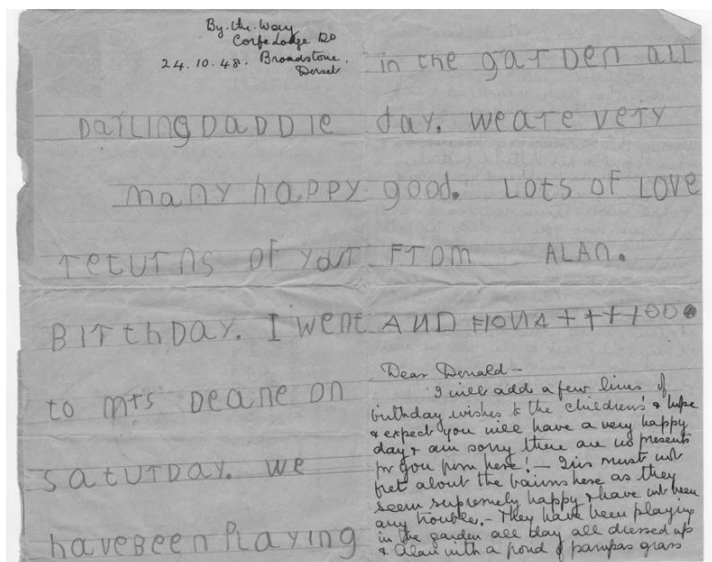 By-the-Way
Corfe Lodge Rd
24.10.48. Broadstone.
Dorset
DarlingDaDDIe
many happy
returns of your
BIrthDay. I went
to mrs Deane on
saturDay. we
haveBeen Playing
in the garDen all
day. weare very
good. Lots of Love
From ALAN.
AND FIONA + + + 100 0
Dear Donald –
I will add a few lines of
birthday wishes to the children's & hope
& expect you will have a very happy
day & am sorry there are no presents
for you from here! – must not
fret about the bairns here as they
seem supremely happy & have not been
any trouble. – They have been playing
in the garden all day all dressed up
& Alan with a frond of pampas grass